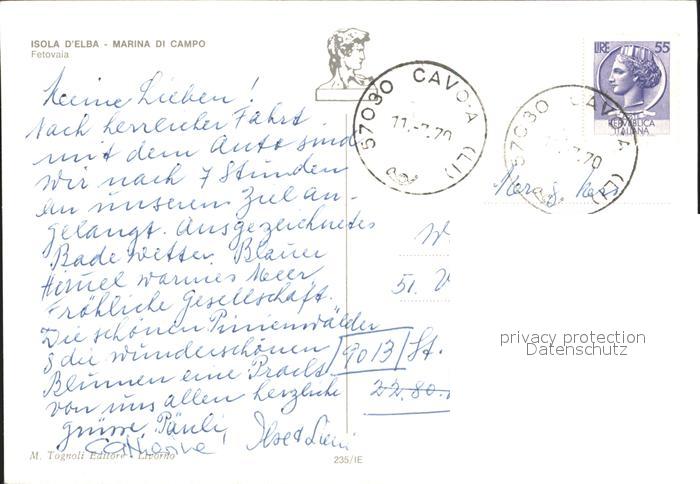 ISOLA D'ELBA - MARINA DI CAMPO
Fetovaia
Meine Lieben!
Nach herrlicher Fahrt
mit dem Auto sind
wir nach 7 Stunden
an unserem Ziel an-
gelangt. Ausgezeichnetes
Badewetter. Blauer
Himmel warmes Meer
Fröhliche Gesellschaft.
Die schönen Pinienwälder
& die wunderschönen
Blumen eine Pracht
von uns allen herzliche
grüsse. Päuli
M. Tognoli Editore - Livorno
235/IE
57030 CAVO-A (LI)
11.-7.70
LIRE 55
REPVBBLICA
ITALIANA
57030 CAVO-A (LI)
7.70
W
51. V
9013 St.
22.80.
privacy protection
Datenschutz